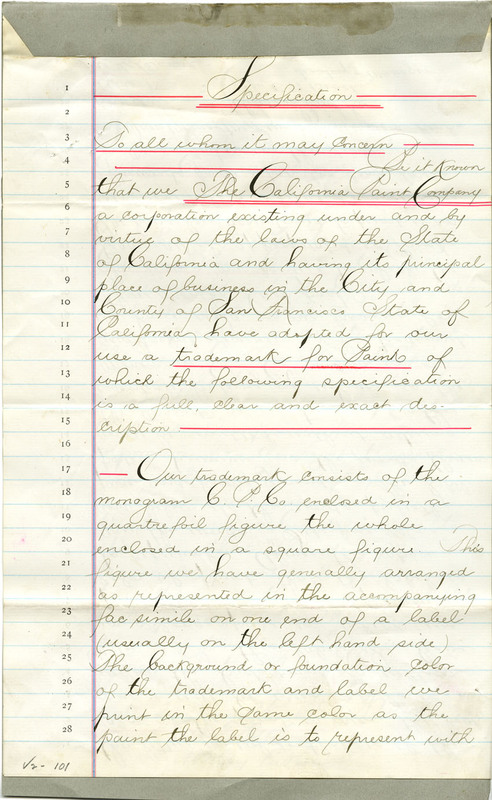 Specification
1
2
3 To all whom it may concern
4 Be it Known
5 that we The California Paint Company
6 a corporation existing under and by
7 virtue of the laws of the State
8 of California and having its principal
9 place of business in the City and
10 County of San Francisco State of
11 California, have adopted for our
12 use a trademark for Paint of
13 which the following specification
14 is a full, clear and exact des-
15 cription
16
17 Our trademark consists of the
18 monogram C. P. Co enclosed in a
19 quartrefoil figure the whole
20 enclosed in a square figure. This
21 figure we have generally arranged
22 as represented in the accompanying
23 fac simile on one end of a label
24 (usually on the left hand side)
25 The background or foundation color
26 of the trademark and label we
27 print in the same color as the
28 paint the label is to represent with
V2- 101